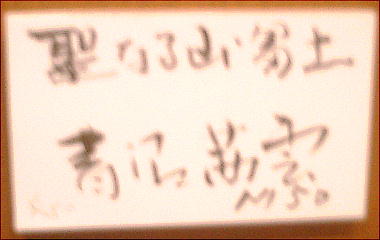 聖なる山富士
青沼茜雲